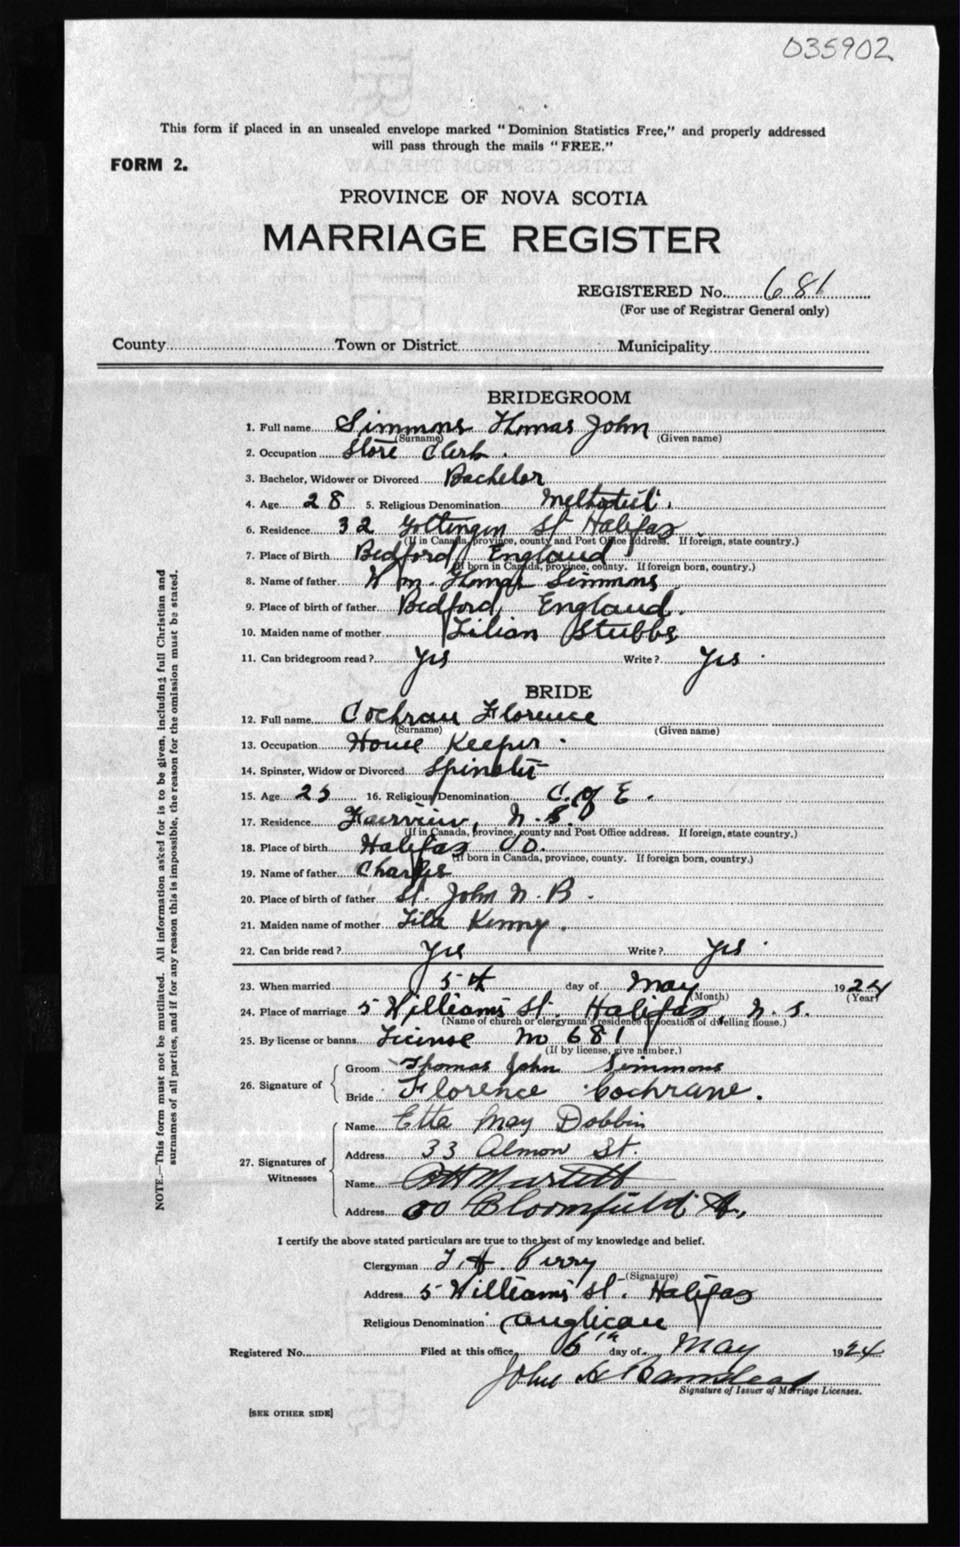 035902
This form if placed in an unsealed envelope marked "Dominion Statistics Free," and properly addressed
will pass through the mails "FREE."
FORM 2.
PROVINCE OF NOVA SCOTIA
MARRIAGE REGISTER
REGISTERED No. 681
(For use of Registrar General only)
County Town or District Municipality
BRIDEGROOM
1. Full name Simmons Thomas John
(Surname) (Given name)
2. Occupation Store Clerk.
3. Bachelor, Widower or Divorced Bachelor
4. Age 28 5. Religious Denomination Methodist.
6. Residence 32 Gottingen St Halifax
(If in Canada, province, county and Post Office address. If foreign, state country.)
7. Place of Birth Bedford England
(If born in Canada, province, county. If foreign born, country.)
8. Name of father Wm. Thomas Simmons
9. Place of birth of father Bedford, England.
10. Maiden name of mother Lilian Stubbs
11. Can bridegroom read? Yes Write? Yes
BRIDE
12. Full name Cochran Florence
(Surname) (Given name)
13. Occupation House Keeper.
14. Spinster, Widow or Divorced Spinster
15. Age 25 16. Religious Denomination C. of E.
17. Residence Fairview, N.S.
(If in Canada, province, county and Post Office address. If foreign, state country.)
18. Place of birth Halifax Co.
(If born in Canada, province, county. If foreign born, country.)
19. Name of father Charles
20. Place of birth of father St. John N.B.
21. Maiden name of mother Kenny.
22. Can bride read? Yes Write? Yes
23. When married 5th day of May 1924
(Month) (Year)
24. Place of marriage 5 Williams St. Halifax, N.S.
(Name of church or clergyman's residence or location of dwelling house.)
25. By license or banns License No 681
(If by license, give number.)
26. Signature of
Groom Thomas John Simmons
Bride Florence Cochrane.
27. Signatures of Witnesses
Name Etta May Dobbin
Address 33 Almon St.
Name
Address Bloomfield St.
I certify the above stated particulars are true to the best of my knowledge and belief.
Clergyman Perry
(Signature)
Address 5 Williams St. Halifax
Religious Denomination Anglican
Registered No. Filed at this office 6th day of May 1924
John A Barnstead
Signature of Issuer of Marriage Licenses.
[SEE OTHER SIDE]
NOTE.—This form must not be mutilated. All information asked for is to be given, including full Christian and
surnames of all parties, and if for any reason this is impossible, the reason for the omission must be stated.